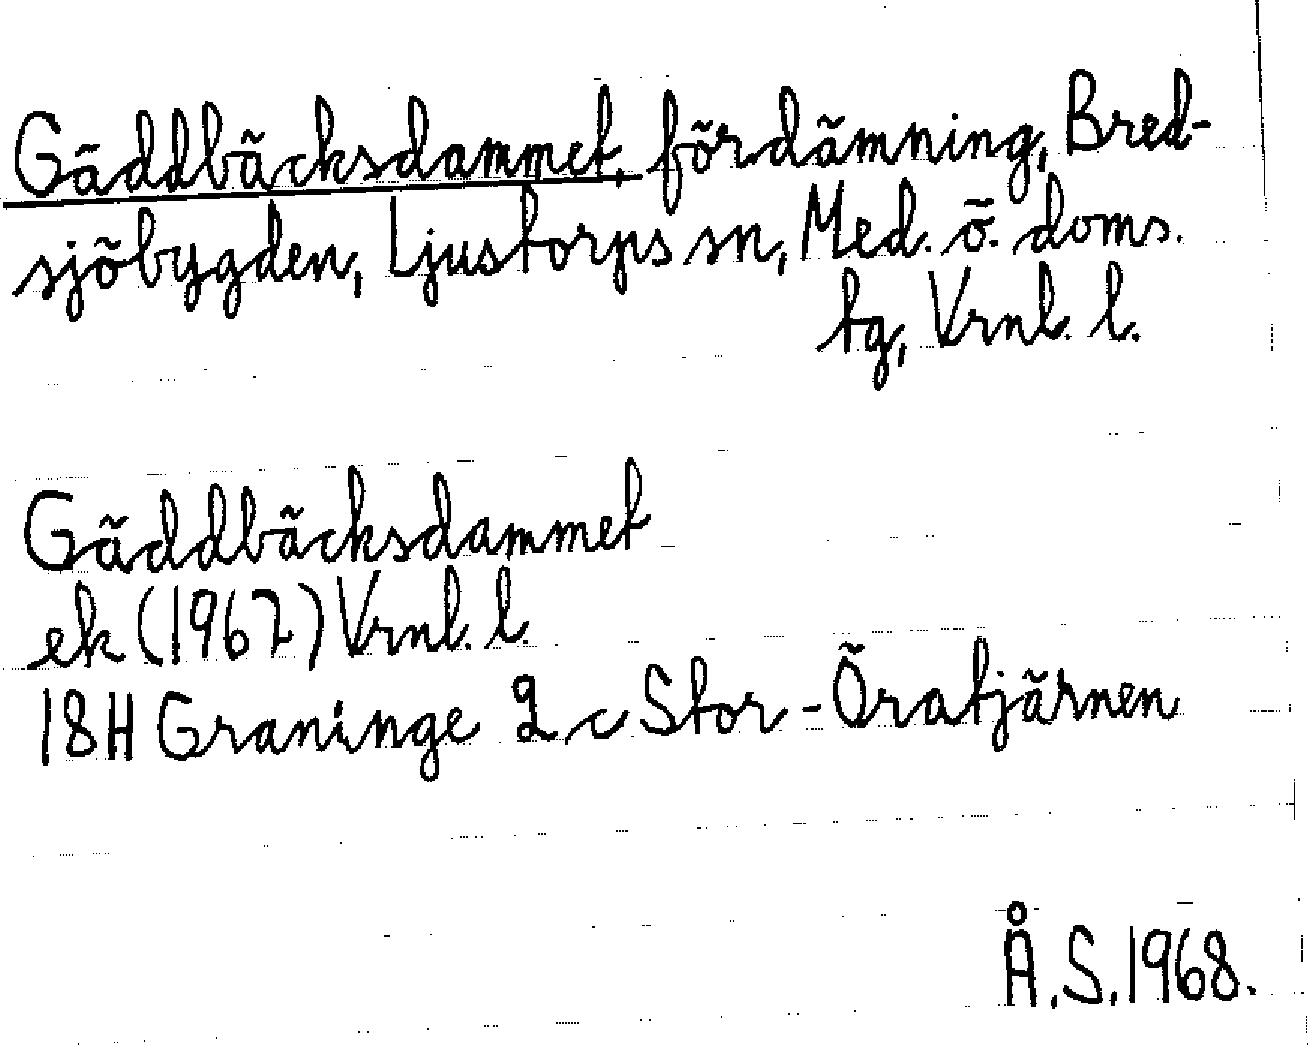 Gäddbäcksdammet, fördämning, Bred-
sjöbygden, Ljustorps sn, Med. ö. doms.
tg, Vrnl. l.
Gäddbäcksdammet
ek (1967) Vrnl. l.
18H Graninge 2 c Stor-Öratjärnen
Å.S. 1968.